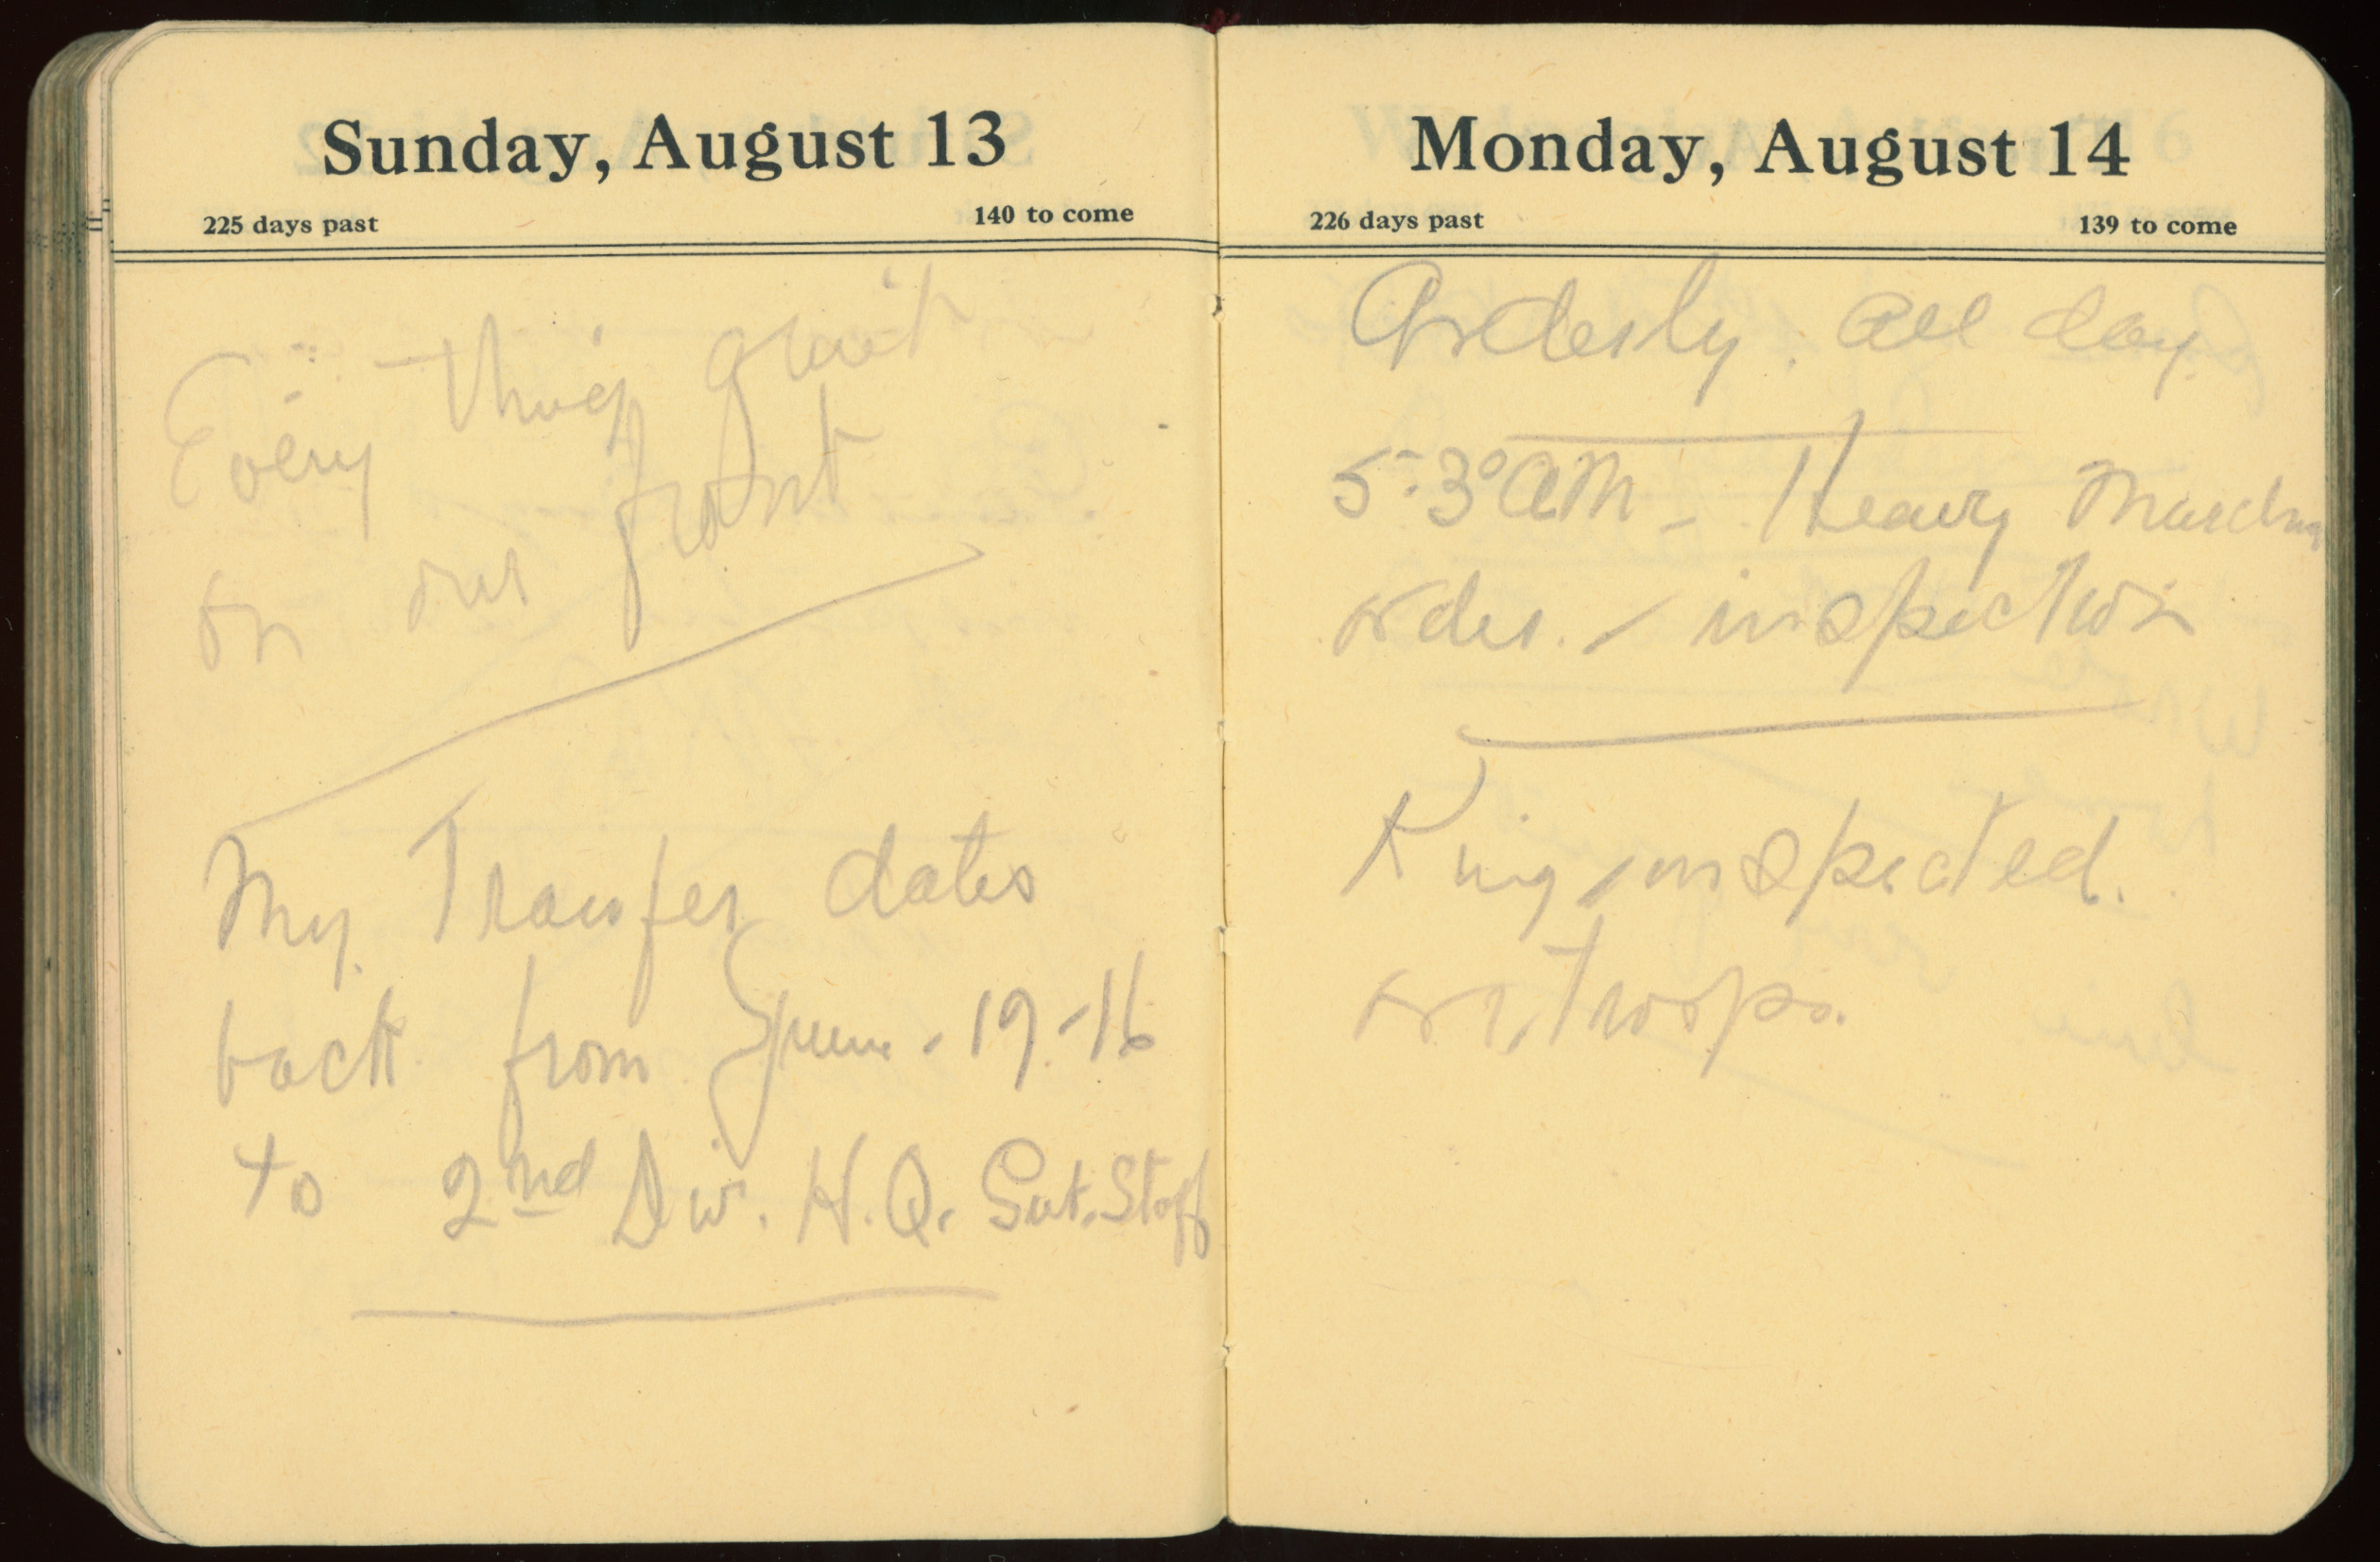 Sunday, August 13
225 days past 140 to come
Every thing quiet
on our front
My Transfer dates
back from June - 19 - 16
to 2nd Div. H.Q. Sub. Staff
Monday, August 14
226 days past 139 to come
Orderly. all day.
5.30 AM - Heavy Marching
order. / inspection
King inspected.
our troops.